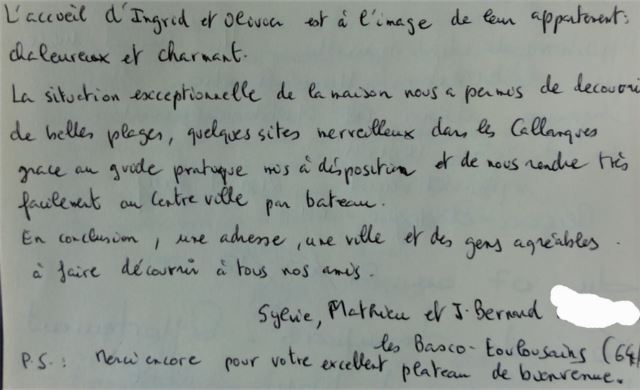 L'accueil d'Ingrid et Olivier est à l'image de leur appartement:
chaleureux et charmant.
La situction exceptionnelle de la maison nous a permis de decouvrir
de belles plages, quelques sites merveilleux dans les Callanques
grace au guide pratique mis à disposition et de nous rendre très
facilement au Centre ville par bateau.
En conclusion, une adresse, une ville et des gens agréables.
à faire découvrir à tous nos amis.
Sylvie, Mathieu et J. Bernard
les Basco-toulousains (64)
P.S.: Merci encore pour votre excellent plateau de bienvenue.